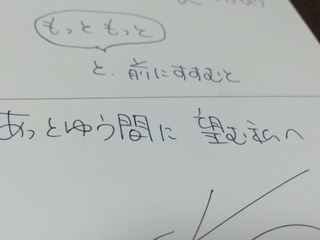 もっともっと
と、前にすすむと
あっとゆう間に 望む私へ